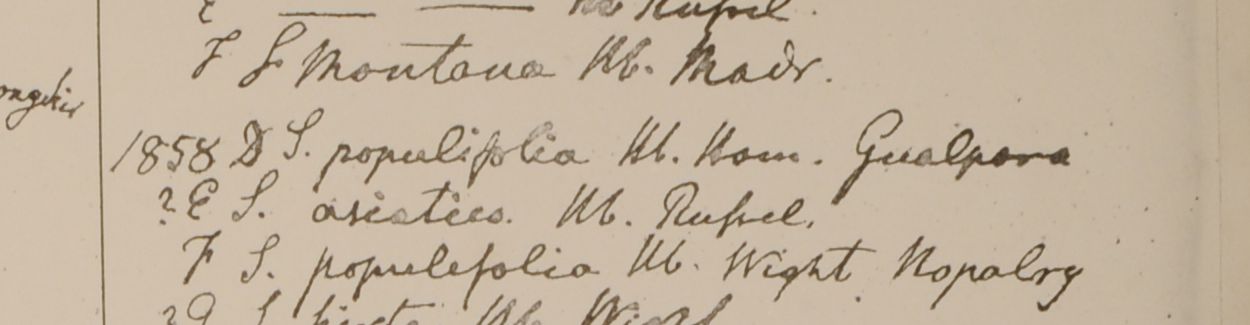 E — — Hb. Russel.
F S montana Hb. Madr.
1858 D S. populifolia Hb. Ham. Gualpara
? E S. asiatica Hb. Russel.
F S. populefolia Hb. Wight Nopalry
? G S. hirta Hb. Wight